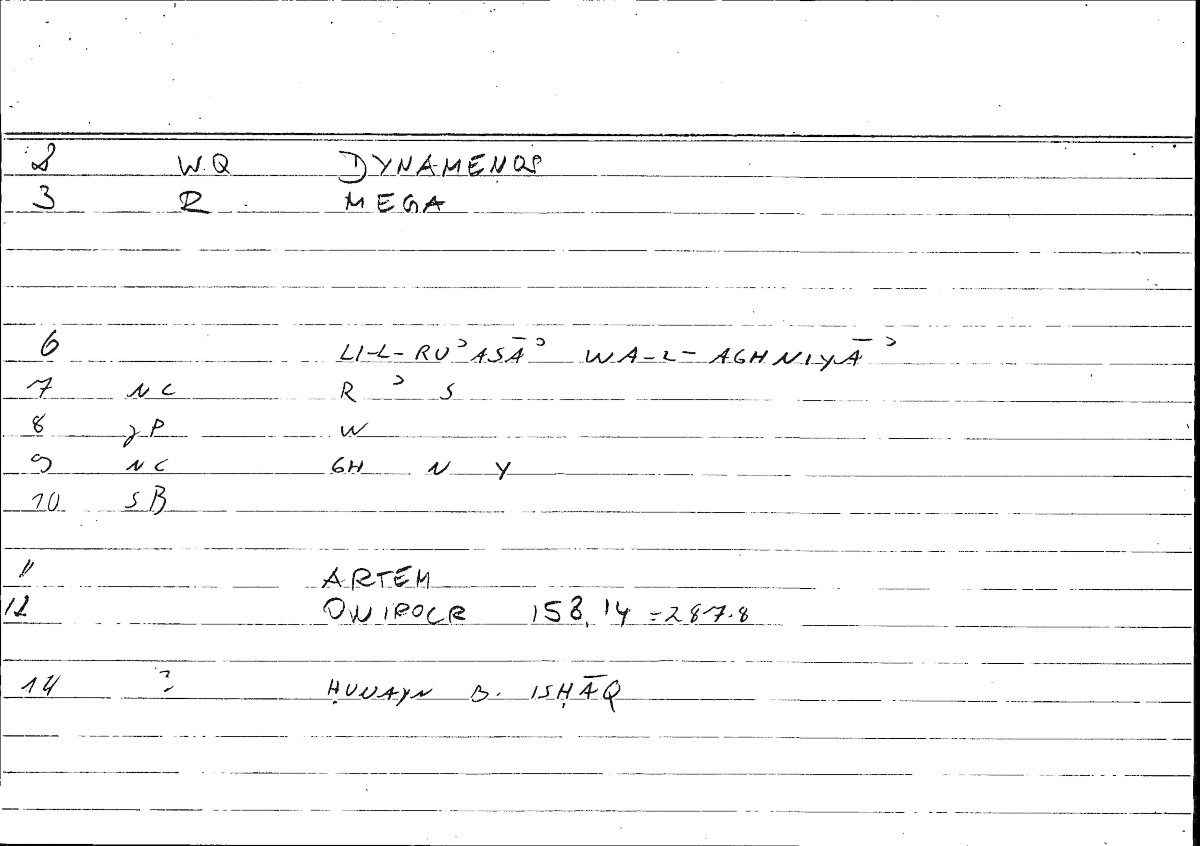 2 WQ DYNAMENOS
3 R MEGA
6 LI-L-RUʾASĀʾ WA-L-AGHNIYĀʾ
7 NC R ʾ S
8 P W
9 NC GH N Y
10 SB
11 ARTEM
12 ONIROCR 158,14 =287.8
14 ? ḤUNAYN B. ISḤĀQ